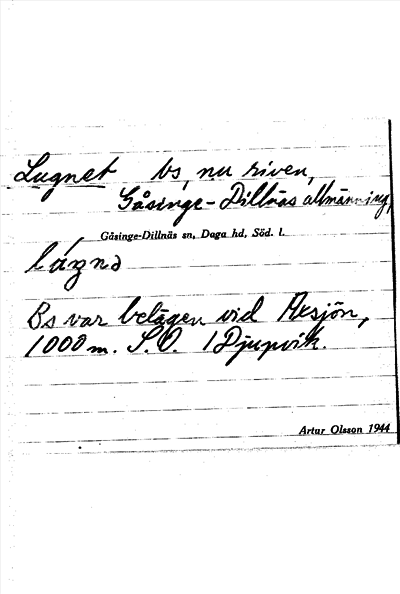 Lugnet bs, nu riven,
Gåsinge-Dillnäs allmänning,
Gåsinge-Dillnäs sn, Daga hd, Söd. l.
Bs var belägen vid Axsjön,
1000 m. S.O. /Djupvik.
Artur Olsson 1944